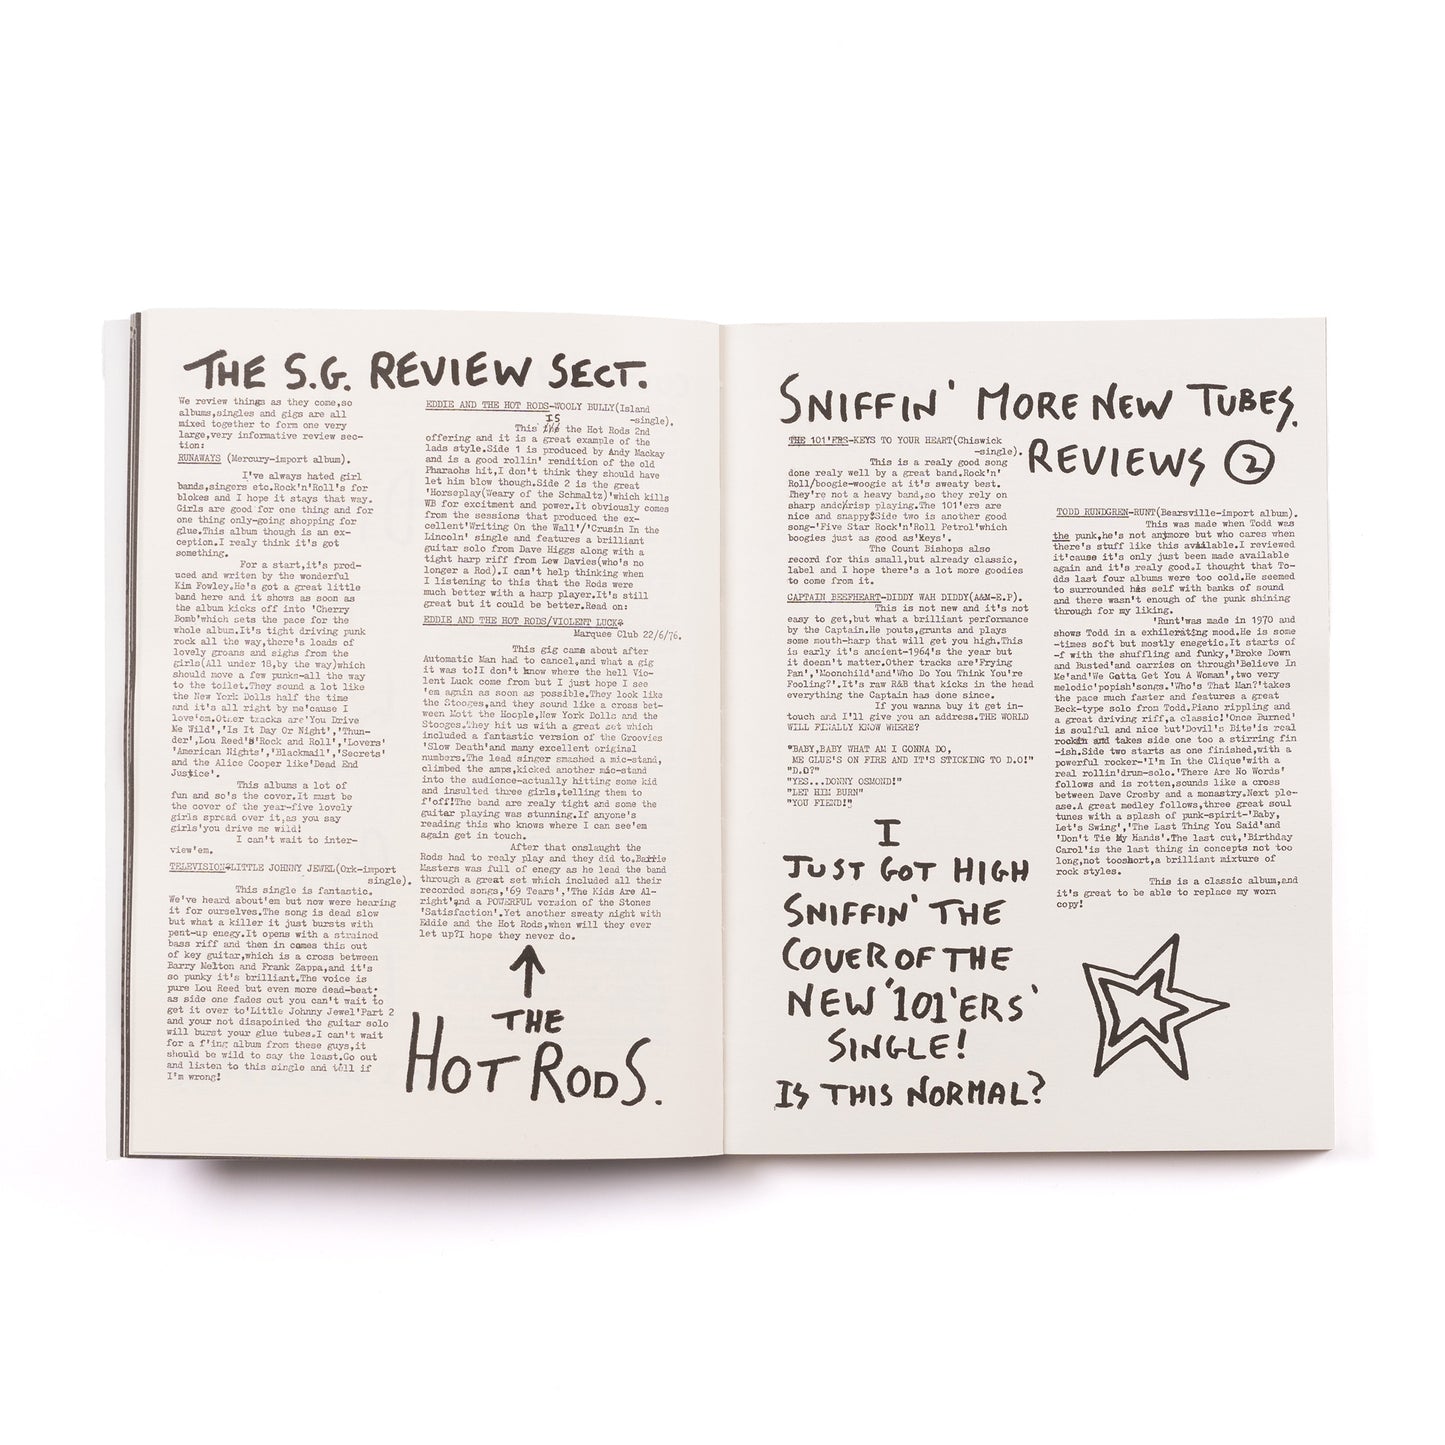 THE S.G. REVIEW SECT.
We review things as they come,so
albums,singles and gigs are all
mixed together to form one very
large,very informative review sec-
tion:
RUNAWAYS (Mercury-import album).
I've always hated girl
bands,singers etc.Rock'n'Roll's for
blokes and I hope it stays that way.
Girls are good for one thing and for
one thing only-going shopping for
glue.This album though is an ex-
ception.I realy think it's got
something.
For a start,it's prod-
uced and writen by the wonderful
Kim Fowley.He's got a great little
band here and it shows as soon as
the album kicks off into 'Cherry
Bomb'which sets the pace for the
whole album.It's tight driving punk
rock all the way,there's loads of
lovely groans and sighs from the
girls(All under 18,by the way)which
should move a few punks-all the way
to the toilet.They sound a lot like
the New York Dolls half the time
and it's all right by me'cause I
love'em.Other tracks are'You Drive
Me Wild','Is It Day Or Night','Thun-
der',Lou Reed's'Rock and Roll','Lovers'
'American Nights','Blackmail','Secrets'
and the Alice Cooper like'Dead End
Justice'.
This albums a lot of
fun and so's the cover.It must be
the cover of the year-five lovely
girls spread over it,as you say
girls'you drive me wild!
I can't wait to inter-
view'em.
TELEVISION-LITTLE JOHNNY JEWEL(Ork-import
single).
This single is fantastic.
We've heard about'em but now were hearing
it for ourselves.The song is dead slow
but what a killer it just bursts with
pent-up enegy.It opens with a strained
bass riff and then in comes this out
of key guitar,which is a cross between
Barry Melton and Frank Zappa,and it's
so punky it's brilliant.The voice is
pure Lou Reed but even more dead-beat;
as side one fades out you can't wait to
get it over to'Little Johnny Jewel'Part 2
and your not disapointed the guitar solo
will burst your glue tubes.I can't wait
for a f'ing album from these guys,it
should be wild to say the least.Go out
and listen to this single and tell if
I'm wrong!
EDDIE AND THE HOT RODS-WOOLY BULLY(Island
-single).
IS
This the Hot Rods 2nd
offering and it is a great example of the
lads style.Side 1 is produced by Andy Mackay
and is a good rollin' rendition of the old
Pharaohs hit,I don't think they should have
let him blow though.Side 2 is the great
'Horseplay(Weary of the Schmaltz)'which kills
WB for excitment and power.It obviously comes
from the sessions that produced the ex-
cellent'Writing On the Wall'/'Crusin In the
Lincoln' single and features a brilliant
guitar solo from Dave Higgs along with a
tight harp riff from Lew Davies(who's no
longer a Rod).I can't help thinking when
I listening to this that the Rods were
much better with a harp player.It's still
great but it could be better.Read on:
EDDIE AND THE HOT RODS/VIOLENT LUCK-
Marquee Club 22/6/76.
This gig came about after
Automatic Man had to cancel,and what a gig
it was to!I don't know where the hell Vio-
lent Luck come from but I just hope I see
'em again as soon as possible.They look like
the Stooges,and they sound like a cross bet-
ween Mott the Hoople,New York Dolls and the
Stooges.They hit us with a great set which
included a fantastic version of the Groovies
'Slow Death'and many excellent original
numbers.The lead singer smashed a mic-stand,
climbed the amps,kicked another mic-stand
into the audience-actually hitting some kid
and insulted three girls,telling them to
f'off!The band are realy tight and some the
guitar playing was stunning.If anyone's
reading this who knows where I can see'em
again get in touch.
After that onslaught the
Rods had to realy play and they did to.Barrie
Masters was full of enegy as he lead the band
through a great set which included all their
recorded songs,'69 Tears','The Kids Are Al-
right'and a POWERFUL version of the Stones
'Satisfaction'.Yet another sweaty night with
Eddie and the Hot Rods,when will they ever
let up?I hope they never do.
THE
HOT RODS.
SNIFFIN' MORE NEW TUBES.
REVIEWS 2
THE 101'ERS-KEYS TO YOUR HEART(Chiswick
-single).
This is a realy good song
done realy well by a great band.Rock'n'
Roll/boogie-woogie at it's sweaty best.
They're not a heavy band,so they rely on
sharp and crisp playing.The 101'ers are
nice and snappy!Side two is another good
song-'Five Star Rock'n'Roll Petrol'which
boogies just as good as'Keys'.
The Count Bishops also
record for this small,but already classic,
label and I hope there's a lot more goodies
to come from it.
CAPTAIN BEEFHEART-DIDDY WAH DIDDY(A&M-E.P).
This is not new and it's not
easy to get,but what a brilliant performance
by the Captain.He pouts,grunts and plays
some mouth-harp that will get you high.This
is early it's ancient-1964's the year but
it doesn't matter.Other tracks are'Frying
Pan','Moonchild'and'Who Do You Think You're
Fooling?'.It's raw R&B that kicks in the head
everything the Captain has done since.
If you wanna buy it get in-
touch and I'll give you an address.THE WORLD
WILL FINALLY KNOW WHERE?
"BABY,BABY WHAT AM I GONNA DO,
ME GLUE'S ON FIRE AND IT'S STICKING TO D.O!"
"D.O?"
"YES...DONNY OSMOND!"
"LET HIM BURN"
"YOU FIEND!"
I
JUST GOT HIGH
SNIFFIN' THE
COVER OF THE
NEW '101'ERS'
SINGLE!
IS THIS NORMAL?
TODD RUNDGREN-RUNT(Bearsville-import album).
This was made when Todd was
the punk,he's not anymore but who cares when
there's stuff like this available.I reviewed
it'cause it's only just been made available
again and it's realy good.I thought that To-
dds last four albums were too cold.He seemed
to surrounded his self with banks of sound
and there wasn't enough of the punk shining
through for my liking.
'Runt'was made in 1970 and
shows Todd in a exhilerating mood.He is some
-times soft but mostly enegetic.It starts of
-f with the shuffling and funky,'Broke Down
and Busted'and carries on through'Believe In
Me'and'We Gotta Get You A Woman',two very
melodic'popish'songs.'Who's That Man?'takes
the pace much faster and features a great
Beck-type solo from Todd.Piano rippling and
a great driving riff,a classic!'Once Burned'
is soulful and nice but'Devil's Bite'is real
rockin and takes side one too a stirring fin
-ish.Side two starts as one finished,with a
powerful rocker-'I'm In the Clique'with a
real rollin'drum-solo.'There Are No Words'
follows and is rotten,sounds like a cross
between Dave Crosby and a monastry.Next ple-
ase.A great medley follows,three great soul
tunes with a splash of punk-spirit-'Baby,
Let's Swing','The Last Thing You Said'and
'Don't Tie My Hands'.The last cut,'Birthday
Carol'is the last thing in concepts not too
long,not tooshort,a brilliant mixture of
rock styles.
This is a classic album,and
it's great to be able to replace my worn
copy!